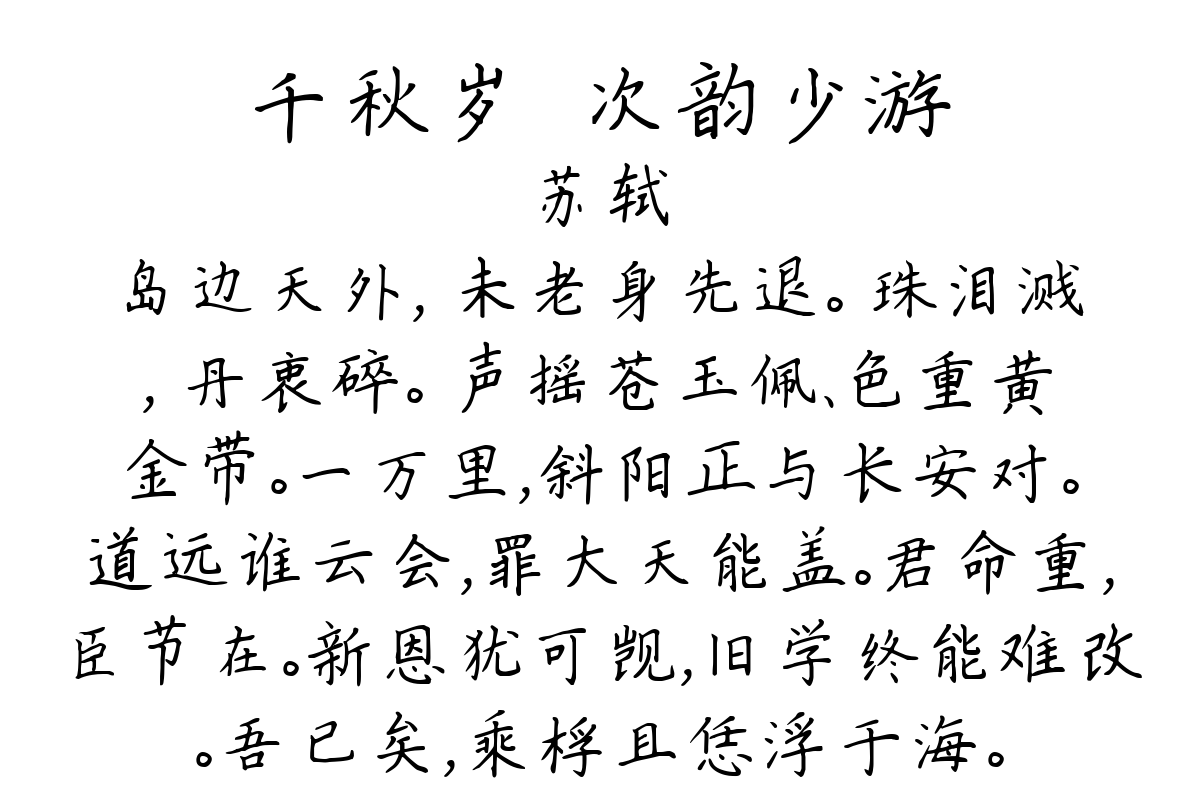 千秋岁 次韵少游
苏轼
岛边天外,未老身先退。珠泪溅
,丹衷碎。声摇苍玉佩、色重黄
金带。一万里,斜阳正与长安对。
道远谁云会,罪大天能盖。君命重,
臣节在。新恩犹可觊,旧学终能难改
。吾已矣,乘桴且恁浮于海。